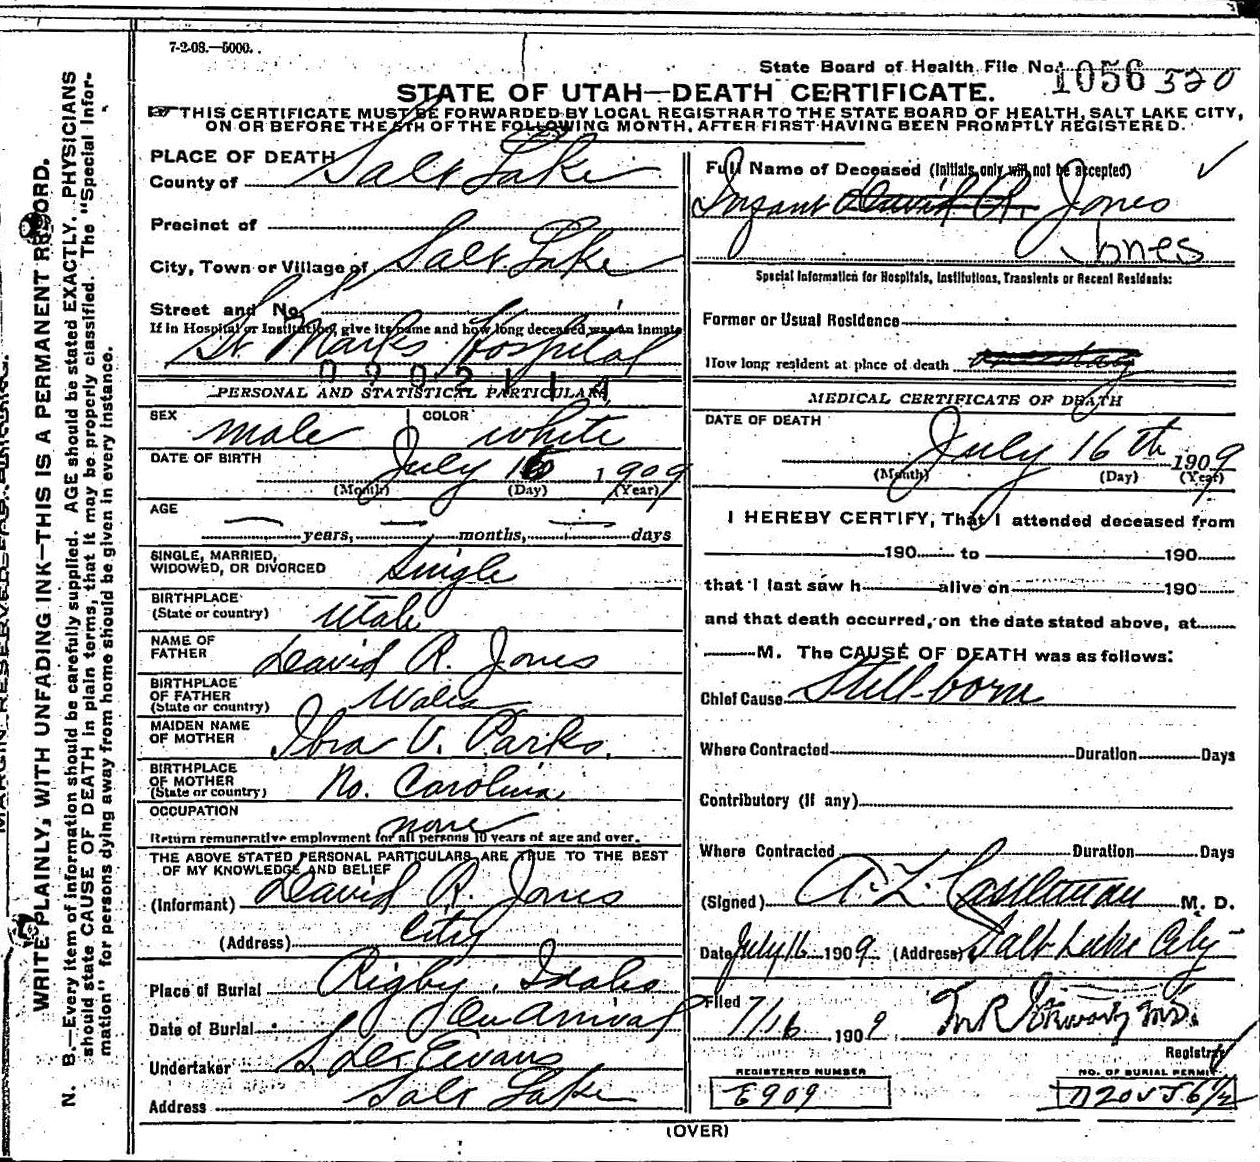 7-2-08.—5000.
State Board of Health File No. 1056 320
STATE OF UTAH—DEATH CERTIFICATE.
THIS CERTIFICATE MUST BE FORWARDED BY LOCAL REGISTRAR TO THE STATE BOARD OF HEALTH, SALT LAKE CITY,
ON OR BEFORE THE 5TH OF THE FOLLOWING MONTH, AFTER FIRST HAVING BEEN PROMPTLY REGISTERED.
PLACE OF DEATH
County of Salt Lake
Precinct of
City, Town or Village of Salt Lake
Street and No.
If in Hospital or Institution, give its name and how long deceased was an inmate
St. Marks Hospital
PERSONAL AND STATISTICAL PARTICULARS
SEX male COLOR white
DATE OF BIRTH July 16 1909
(Month) (Day) (Year)
AGE
— years, — months, — days
SINGLE, MARRIED,
WIDOWED, OR DIVORCED Single
BIRTHPLACE
(State or country) Utah
NAME OF
FATHER David R. Jones
BIRTHPLACE
OF FATHER
(State or country) Wales
MAIDEN NAME
OF MOTHER Ibra V. Parks.
BIRTHPLACE
OF MOTHER
(State or country) No. Carolina
OCCUPATION
none
Return remunerative employment for all persons 10 years of age and over.
THE ABOVE STATED PERSONAL PARTICULARS ARE TRUE TO THE BEST
OF MY KNOWLEDGE AND BELIEF
(Informant) David R. Jones
(Address) City
Place of Burial Rigby, Idaho
Date of Burial On Arrival
Undertaker S. D. Evans
Address Salt Lake
Full Name of Deceased (Initials only will not be accepted)
Infant David R. Jones
Jones
Special Information for Hospitals, Institutions, Transients or Recent Residents:
Former or Usual Residence
How long resident at place of death
MEDICAL CERTIFICATE OF DEATH
DATE OF DEATH
July 16th 1909
(Month) (Day) (Year)
I HEREBY CERTIFY, That I attended deceased from
190 to 190
that I last saw h alive on 190
and that death occurred, on the date stated above, at
M. The CAUSE OF DEATH was as follows:
Chief Cause Still-born
Where Contracted Duration Days
Contributory (if any)
Where Contracted Duration Days
(Signed) A. Z. Castleman M. D.
Date July 16 1909 (Address) Salt Lake City
Filed 7/16 1909
Registrar
REGISTERED NUMBER
E909
NO. OF BURIAL PERMIT
(OVER)
MARGIN RESERVED FOR BINDING.
WRITE PLAINLY, WITH UNFADING INK—THIS IS A PERMANENT RECORD.
N. B.—Every item of information should be carefully supplied. AGE should be stated EXACTLY. PHYSICIANS
should state CAUSE OF DEATH in plain terms, that it may be properly classified. The "Special Infor-
mation" for persons dying away from home should be given in every instance.